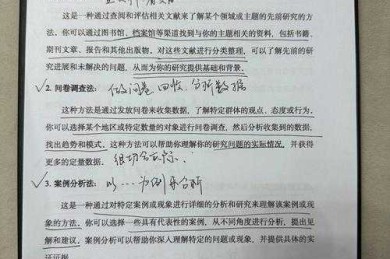 这是一种通过查阅和评估相关文献来了解某个领域或主题的先前研究的方
法。你可以通过图书馆、档案馆等渠道找到与你的主题相关的资料，包括书籍、
期刊文章、报告和其他出版物。对这些文献进行分类整理，可以了解先前的研
究进展和未解决的问题，从而为你的研究提供基础和背景。
√2. 问卷调查法： 做问卷 回收、分析数据
这种方法是通过发放问卷来收集数据，了解特定群体的观点、态度或行为。
你可以选择某个地区或特定数量的对象进行问卷调查，然后分析收集到的数据，
找出趋势和模式。这种方法可以帮助你理解你的研究问题的实际情况，并获得
更多的定量数据。 很切合实际
√3. 案例分析法： 以……为例来分析
这是一种通过对特定案例或现象进行详细的分析和研究来理解该案例或现
象的方法。你可以选择一些具有代表性的案例，从不同角度进行分析，提出见
解和建议。案例分析可以帮助你深入理解特定的问题或现象，并提供具体的实